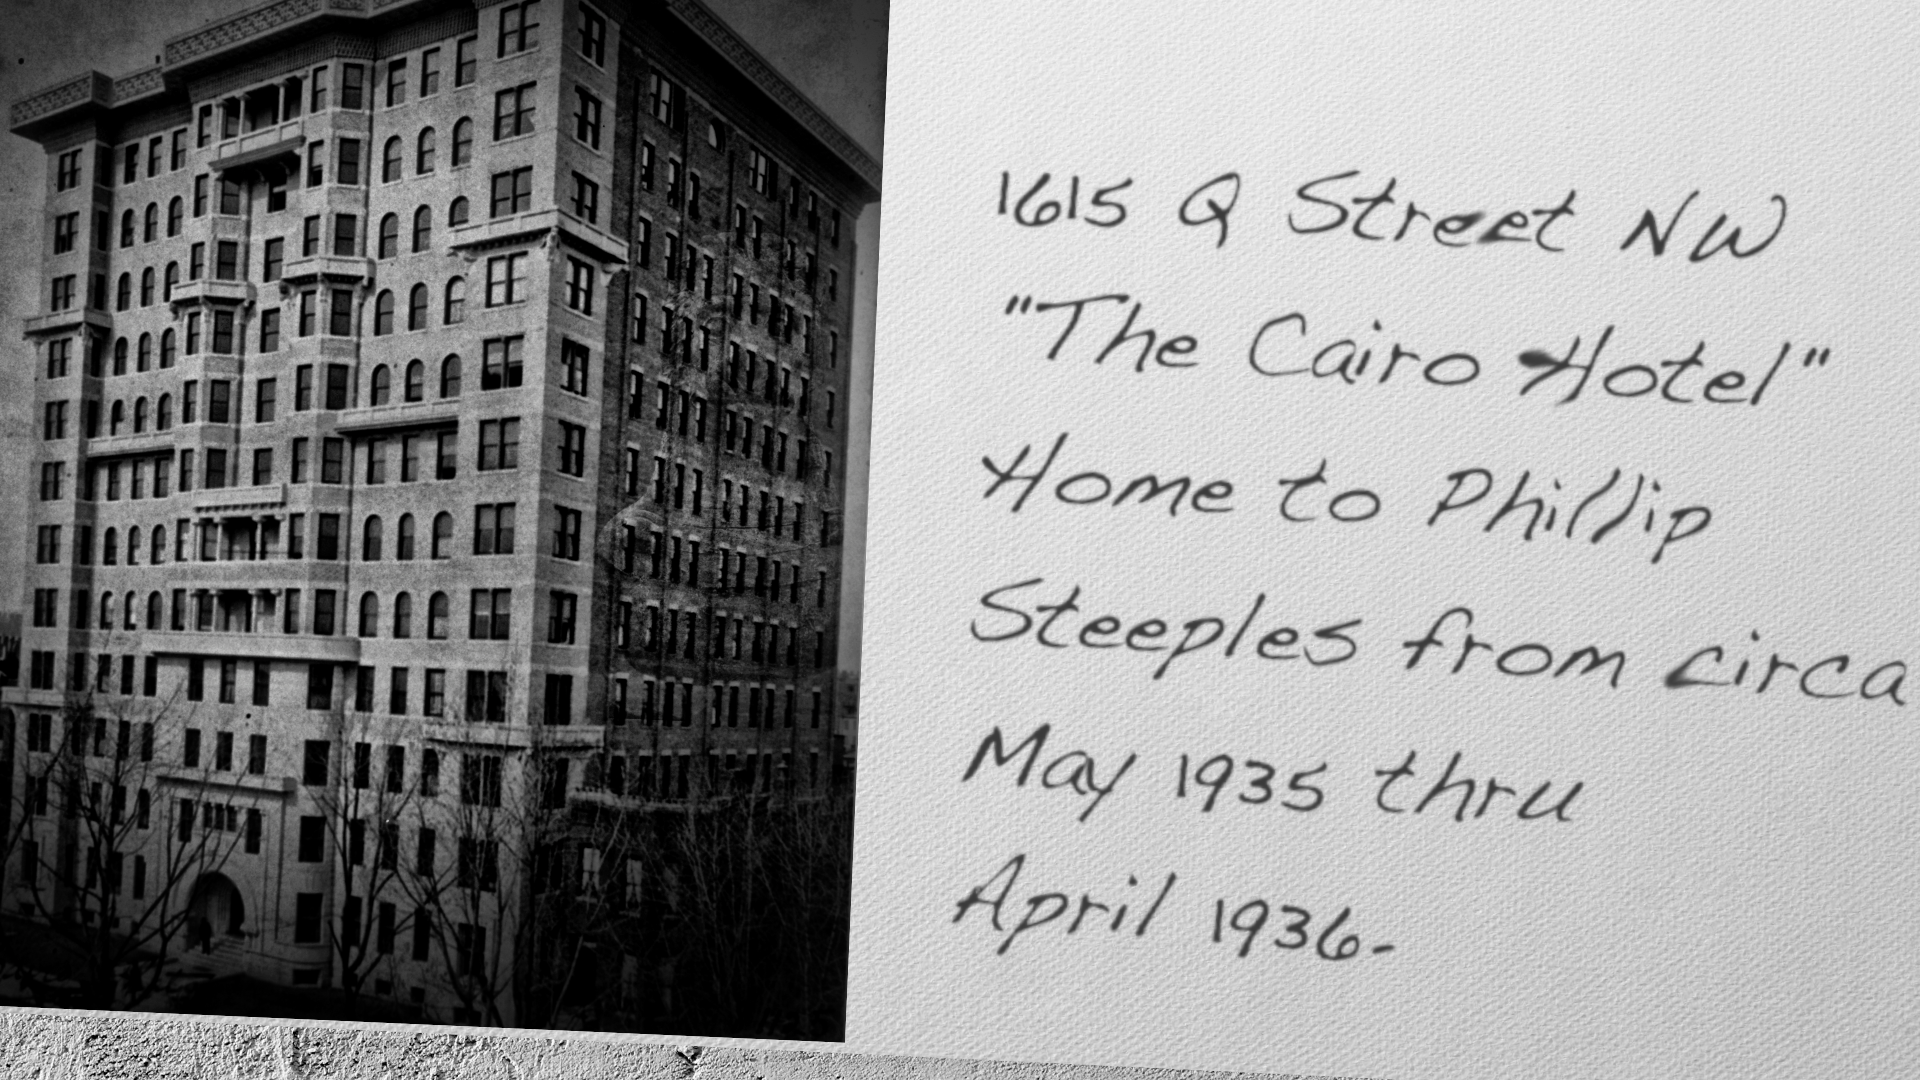 1615 Q Street NW
"The Cairo Hotel"
Home to Phillip
Steeples from circa
May 1935 thru
April 1936-